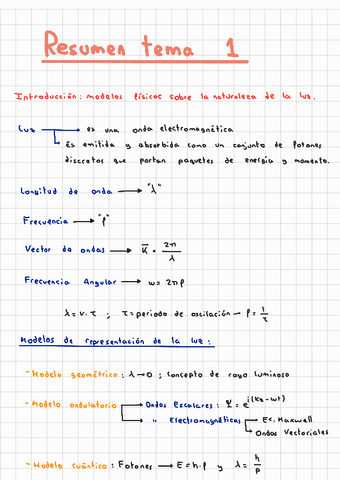 Resumen tema 1
Introducción: modelos físicos sobre la naturaleza de la luz.
Luz → es una onda electromagnética
→ Es emitida y absorbida como un conjunto de fotones
discretos que portan paquetes de energía y momento.
Longitud de onda → "λ"
Frecuencia → "f"
Vector de ondas → K̅ = 2π/λ
Frecuencia Angular → ω = 2πf
λ = v·τ ; τ = periodo de oscilación → f = 1/τ
Modelos de representación de la luz:
- Modelo geométrico: λ → 0 ; concepto de rayo luminoso
- Modelo ondulatorio → Ondas Escalares: Ψ = e^i(kz-ωt)
→ " Electromagnéticas → Ec. Maxwell
→ Ondas Vectoriales
- Modelo cuántico: Fotones → E = h·f y λ = h/p